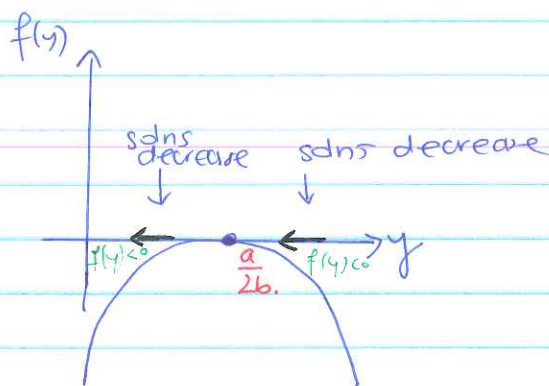 f(y)
sdns
decrease
sdns decrease
f(y)<0
a
2b.
f(y)<0
y